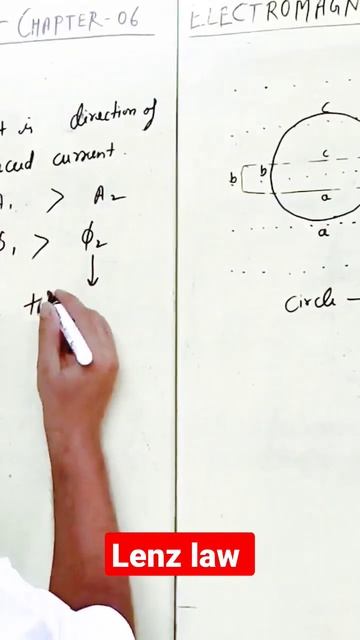 - CHAPTER-06
ELECTROMAGN
t is direction of
uced current.
A₁ > A₂
ϕ₁ > ϕ₂
↓
c
c
b b
a
a
circle -
Lenz law